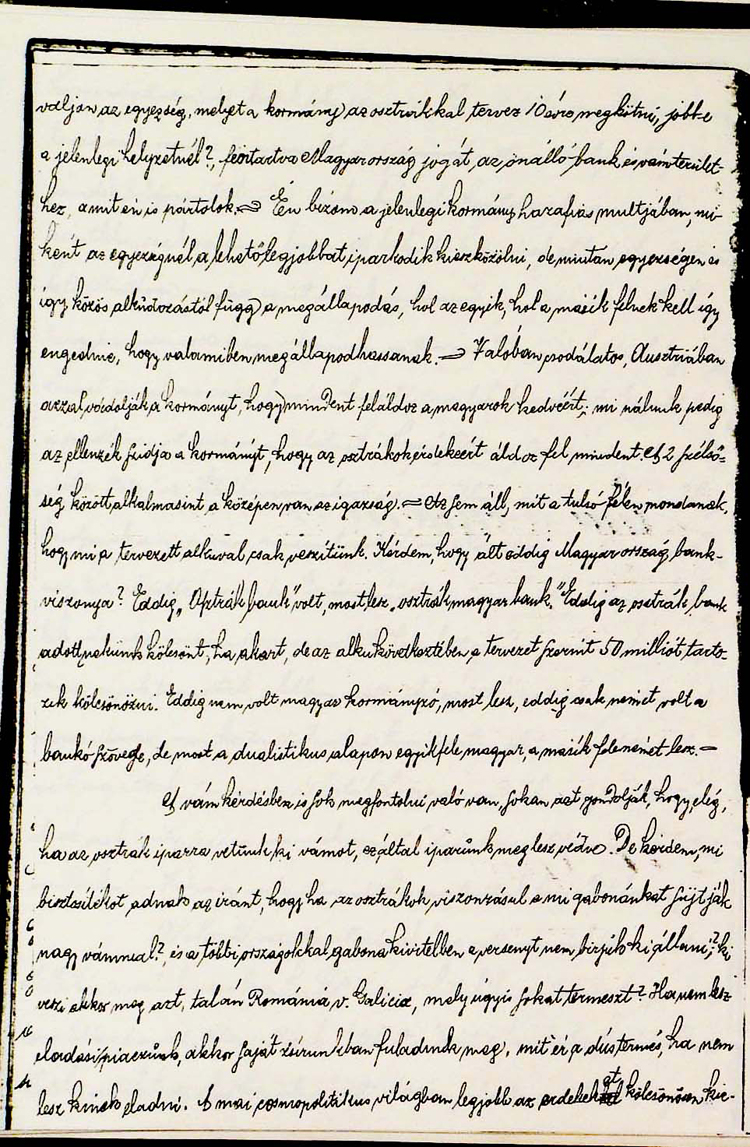 valjon az egyezség, melyet a kormány az osztrákkal tervez 10 évre megkötni, jobb-e
a jelenlegi helyzetnél?, fentartva Magyarország jogát, az önálló bank és vámterület-
hez, amit én is pártolok. = Én bizom a jelenlegi kormány hazafias multjában, mi-
ként az egyezségnél, a lehető legjobbat iparkodik kieszközölni, de miután egyezségen és
így közös alkudozástól függ a megállapodás, hol az egyik, hol a másik félnek kell így
engednie, hogy valamiben megállapodhassanak. = Valóban csodálatos, Ausztriában
azzal vádolják a kormányt, hogy mindent feláldoz a magyarok kedvéért; mi nálunk pedig
az ellenzék szidja a kormányt, hogy az osztrákok érdekeért áldoz fel mindent. A 2 szélső-
ség között, alkalmasint a középen van az igazság. = Az sem áll, mit a tulsó félen mondanak,
hogy mi a tervezett alkuval csak veszítünk. Kérdem, hogy állt eddig Magyarország bank-
viszonya? Eddig „Osztrák bank" volt, most lesz „osztrák magyar bank." Eddig az osztrák bank
adott nekünk kölcsönt, ha akart, de az alku következtében, a tervezet szerint 50 milliót, tarto-
zik kölcsönözni. Eddig nem volt magyar kormányzó, most lesz, eddig csak német volt a
bankó szövege, de most a dualistikus alapon egyik fele magyar, a másik fele német lesz. =
A vám kérdésben is sok megfontolni való van, sokan azt gondolják, hogy elég,
ha az osztrák iparra vetünk ki vámot, ezáltal iparunk meg lesz védve. De kérdem, mi
biztosítékot adnak az iránt, hogy ha az osztrákok viszonzásul a mi gabonánkat sujtják
nagy vámmal?, és a többi országokkal gabona kivitelben a versenyt nem birjuk ki állani,? ki
veszi akkor meg azt, talán Románia v. Galicia, mely úgyis sokat termeszt? Ha nem lesz
eladási piaczunk, akkor saját zsirunkban fuladunk meg, mit ér a dús termés, ha nem
lesz kinek eladni. A mai cosmopolitikus világban legjobb az érdekeket kölcsönösen kie-